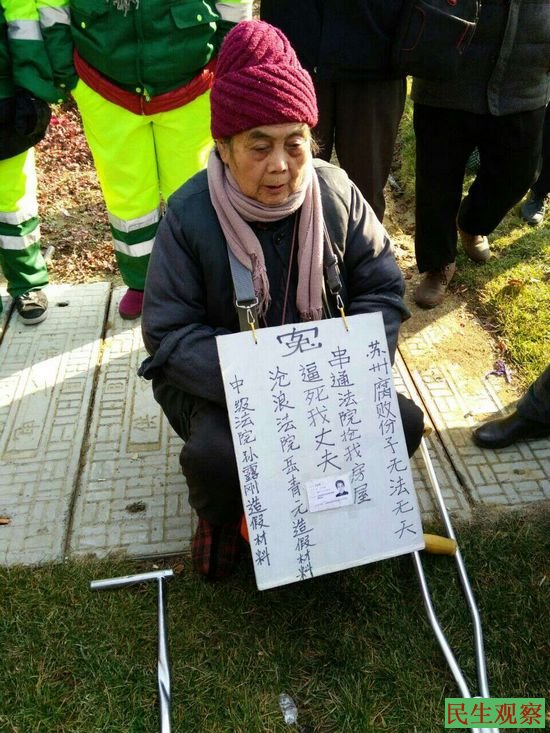 冤
苏州腐败份子无法无天
串通法院抢我房屋
逼死我丈夫
沧浪法院岳青元造假材料
中级法院孙露刚造假材料
民生观察